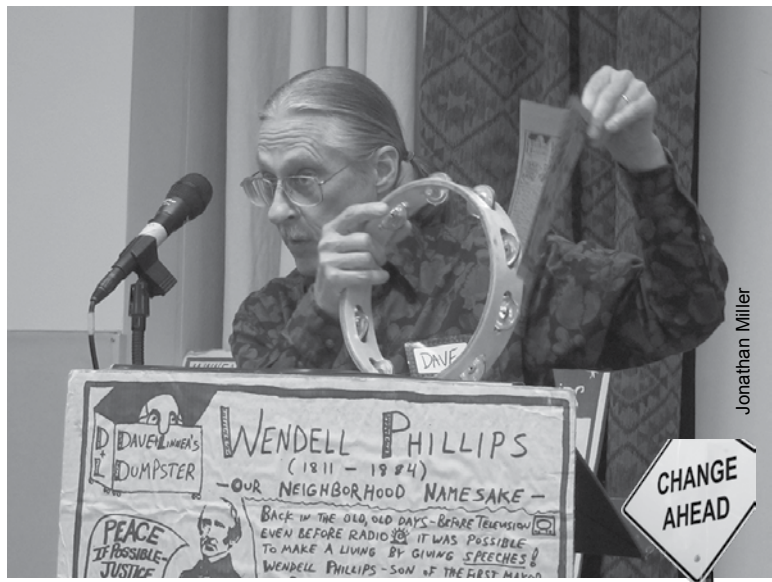 DAVE
DAVE & LINNEA'S
DUMPSTER
D
&
L
WENDELL PHILLIPS
(1811 – 1884)
– OUR NEIGHBORHOOD NAMESAKE –
BACK IN THE OLD, OLD DAYS – BEFORE TELEVISION
EVEN BEFORE RADIO IT WAS POSSIBLE
TO MAKE A LIVING BY GIVING SPEECHES!
WENDELL PHILLIPS – SON OF THE FIRST MAYOR
PEACE
IF POSSIBLE –
JUSTICE
Jonathan Miller
CHANGE
AHEAD